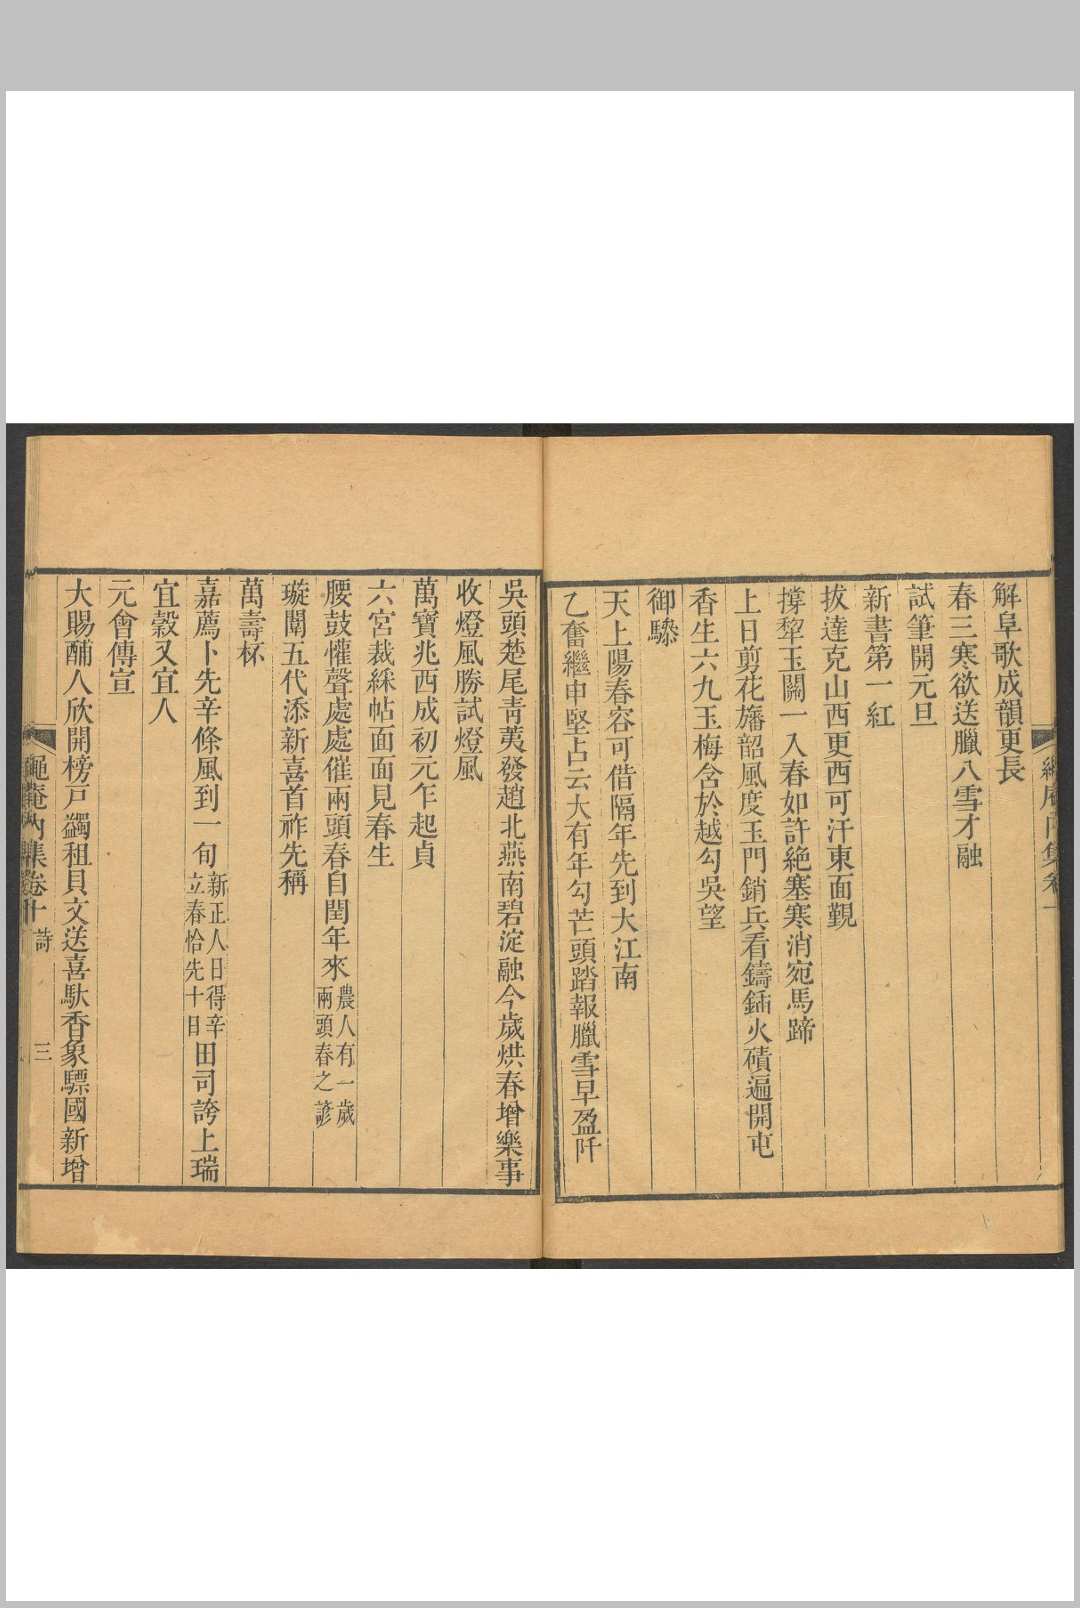 解阜歌成韻更長
春三寒欲送臘八雪才融
試筆開元旦
新書第一紅
拔達克山西更西可汗東面覲
撐犂玉關一入春如許絶塞寒消宛馬蹄
上日剪花旛韶風度玉門銷兵看鑄鍤火磧遍開屯
香生六九玉梅含於越勾吳望
御驂
天上陽春容可借隔年先到大江南
乙奮繼申堅占云大有年勾芒頭踏報臘雪早盈阡
吳頭楚尾青荑發趙北燕南碧淀融今歲烘春增樂事
收燈風勝試燈風
萬寶兆西成初元乍起貞
六宮裁綵帖面面見春生
腰鼓懽聲處處催兩頭春自閏年來農人有一歲兩頭春之諺
璇闈五代添新喜首祚先稱
萬壽杯
嘉薦卜先辛條風到一旬新正人日得辛立春恰先十日田司誇上瑞
宜穀又宜人
元會傳宣
大賜酺人欣開榜戸蠲租貝文送喜馱香象驃國新增
繩庵内集卷十 詩 三